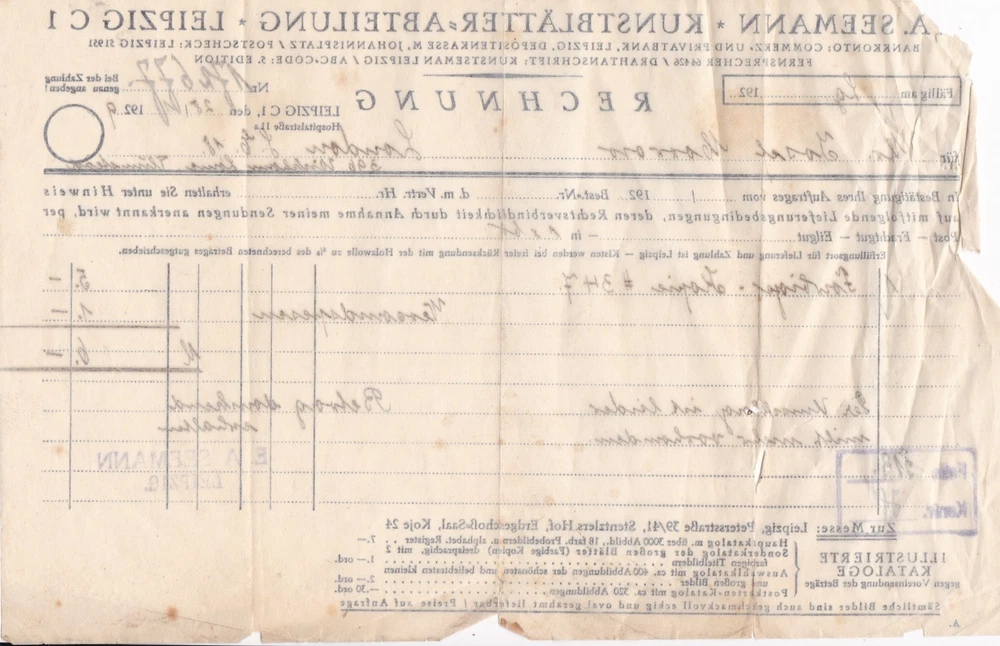 A. SEEMANN * KUNSTBLÄTTER=ABTEILUNG * LEIPZIG C 1
BANKKONTO: COMMERZ- UND PRIVATBANK, LEIPZIG, DEPOSITENKASSE M, JOHANNISPLATZ / POSTSCHECK: LEIPZIG 51351
FERNSPRECHER 64426 / DRAHTANSCHRIFT: KUNSTSEEMAN LEIPZIG / ABC-CODE, 5. EDITION
Fällig am 192
Nr. Bei der Zahlung genau angeben!
RECHNUNG
LEIPZIG C 1, den 192 9
Hospitalstraße 11 a
für Josef London
In Bestätigung Ihres Auftrages vom / 192 Best.-Nr. d. m. Vertr. Hr. erhalten Sie unter Hinweis
auf mitfolgende Lieferungsbedingungen, deren Rechtsverbindlichkeit durch Annahme meiner Sendungen anerkannt wird, per
Post – Frachtgut – Eilgut – in
Erfüllungsort für Lieferung und Zahlung ist Leipzig — Kisten werden bei freier Rücksendung mit der Holzwolle zu % des berechneten Betrages gutgeschrieben.
1 # 347 5. —
Versandspesen 1. —
M 6. —
Der ist leider Betrag dankend
nicht mehr vorhanden erhalten
E. A. SEEMANN
LEIPZIG.
Fak.
Kontr.
Zur Messe: Leipzig, Petersstraße 39/41, Stentzlers Hof, Erdgeschoß-Saal, Koje 24
ILLUSTRIERTE KATALOGE
gegen Voreinsendung der Beträge
Hauptkatalog m. über 3000 Abbild. 18 farb. Probebildern u. alphabet. Register . . 7.—
Sonderkatalog der großen Blätter (Farbige Kopien) dreisprachig, mit 2
farbigen Titelbildern 1.— ord.
Auswahlkatalog mit ca. 400 Abbildungen der schönsten und beliebtesten kleinen
und großen Bilder 2.— ord.
Postkarten-Katalog mit ca. 320 Abbildungen —.30 ord.
Sämtliche Bilder sind auch geschmackvoll eckig und oval gerahmt lieferbar / Preise auf Anfrage
A.